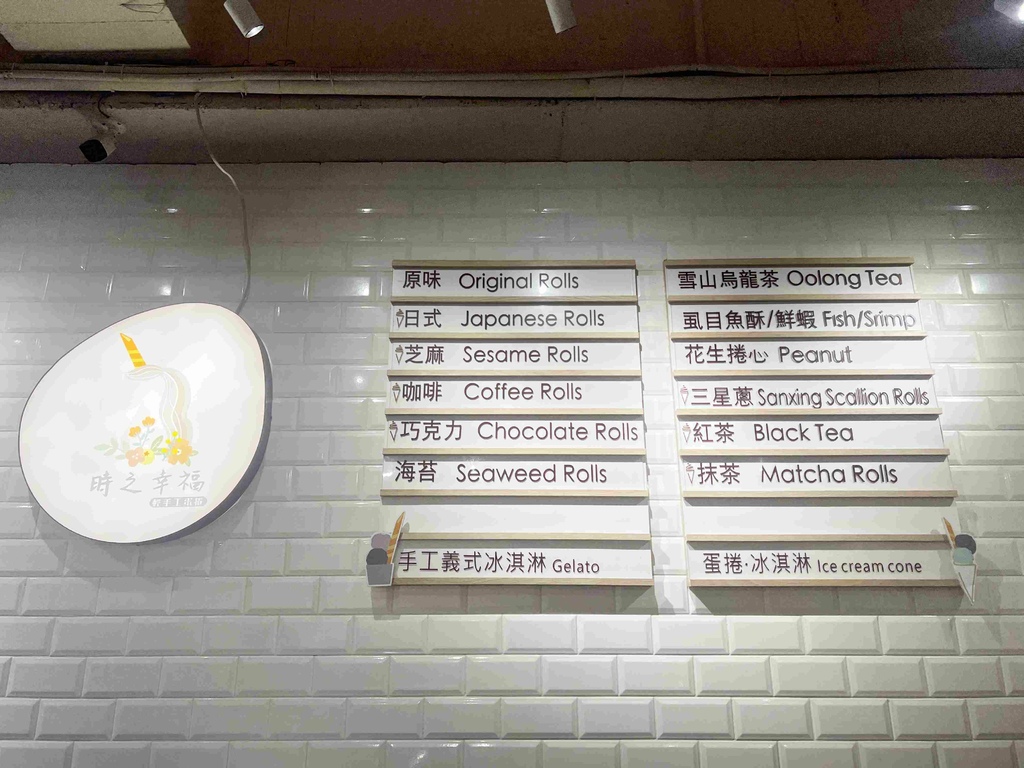 時之幸福
原味 Original Rolls
日式 Japanese Rolls
芝麻 Sesame Rolls
咖啡 Coffee Rolls
巧克力 Chocolate Rolls
海苔 Seaweed Rolls
手工義式冰淇淋 Gelato
雪山烏龍茶 Oolong Tea
虱目魚酥/鮮蝦 Fish/Srimp
花生捲心 Peanut
三星蔥 Sanxing Scallion Rolls
紅茶 Black Tea
抹茶 Matcha Rolls
蛋捲·冰淇淋 Ice cream cone